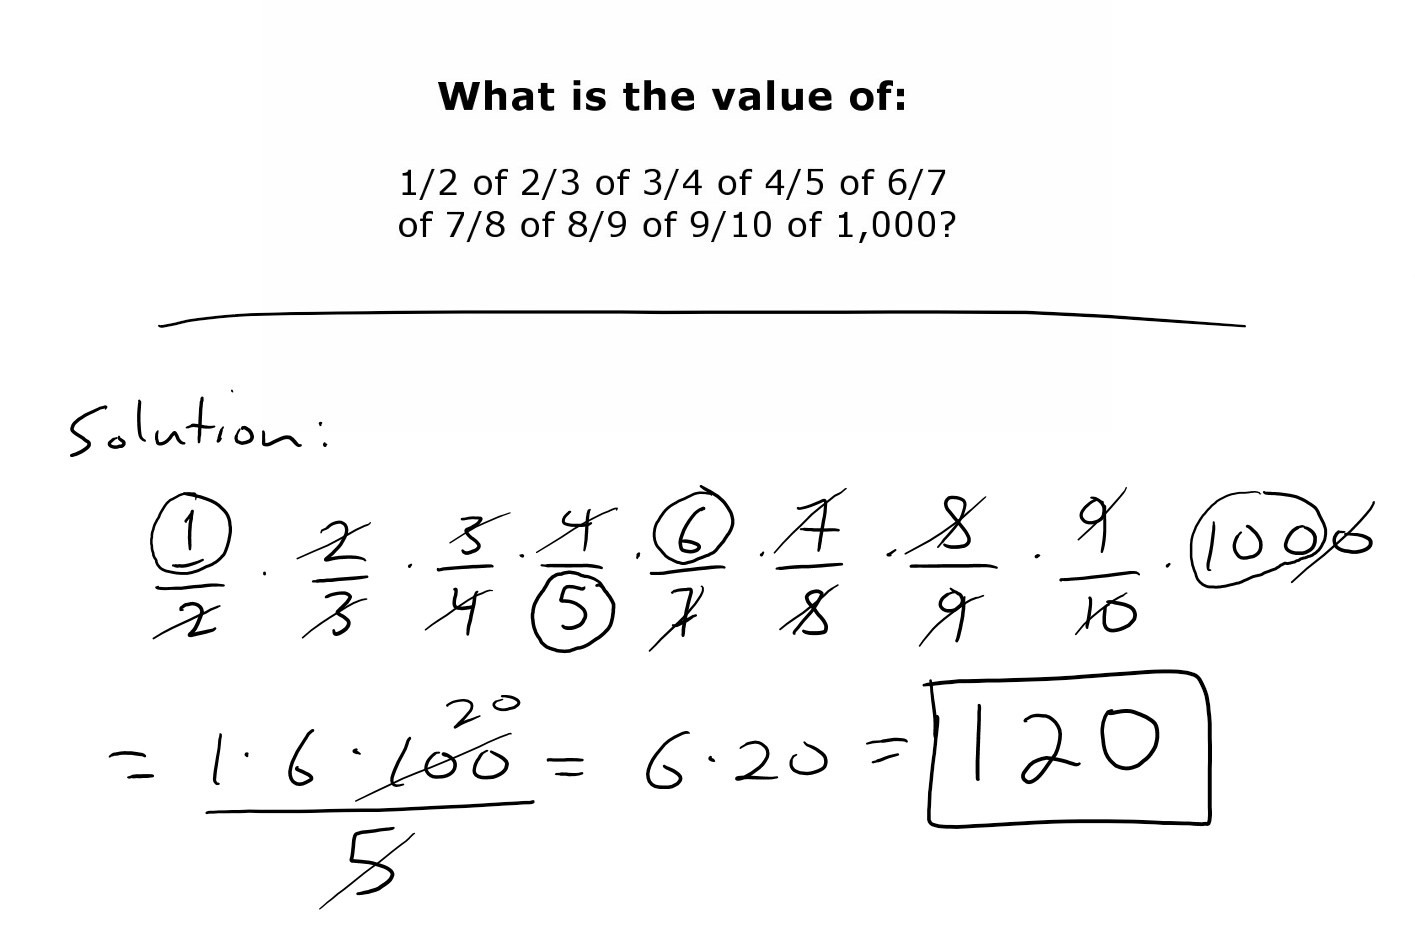 What is the value of:
1/2 of 2/3 of 3/4 of 4/5 of 6/7
of 7/8 of 8/9 of 9/10 of 1,000?
Solution:
1/2 · 2/3 · 3/4 · 4/5 · 6/7 · 7/8 · 8/9 · 9/10 · 1000
20
= 1 · 6 · 100 / 5 = 6 · 20 = 120